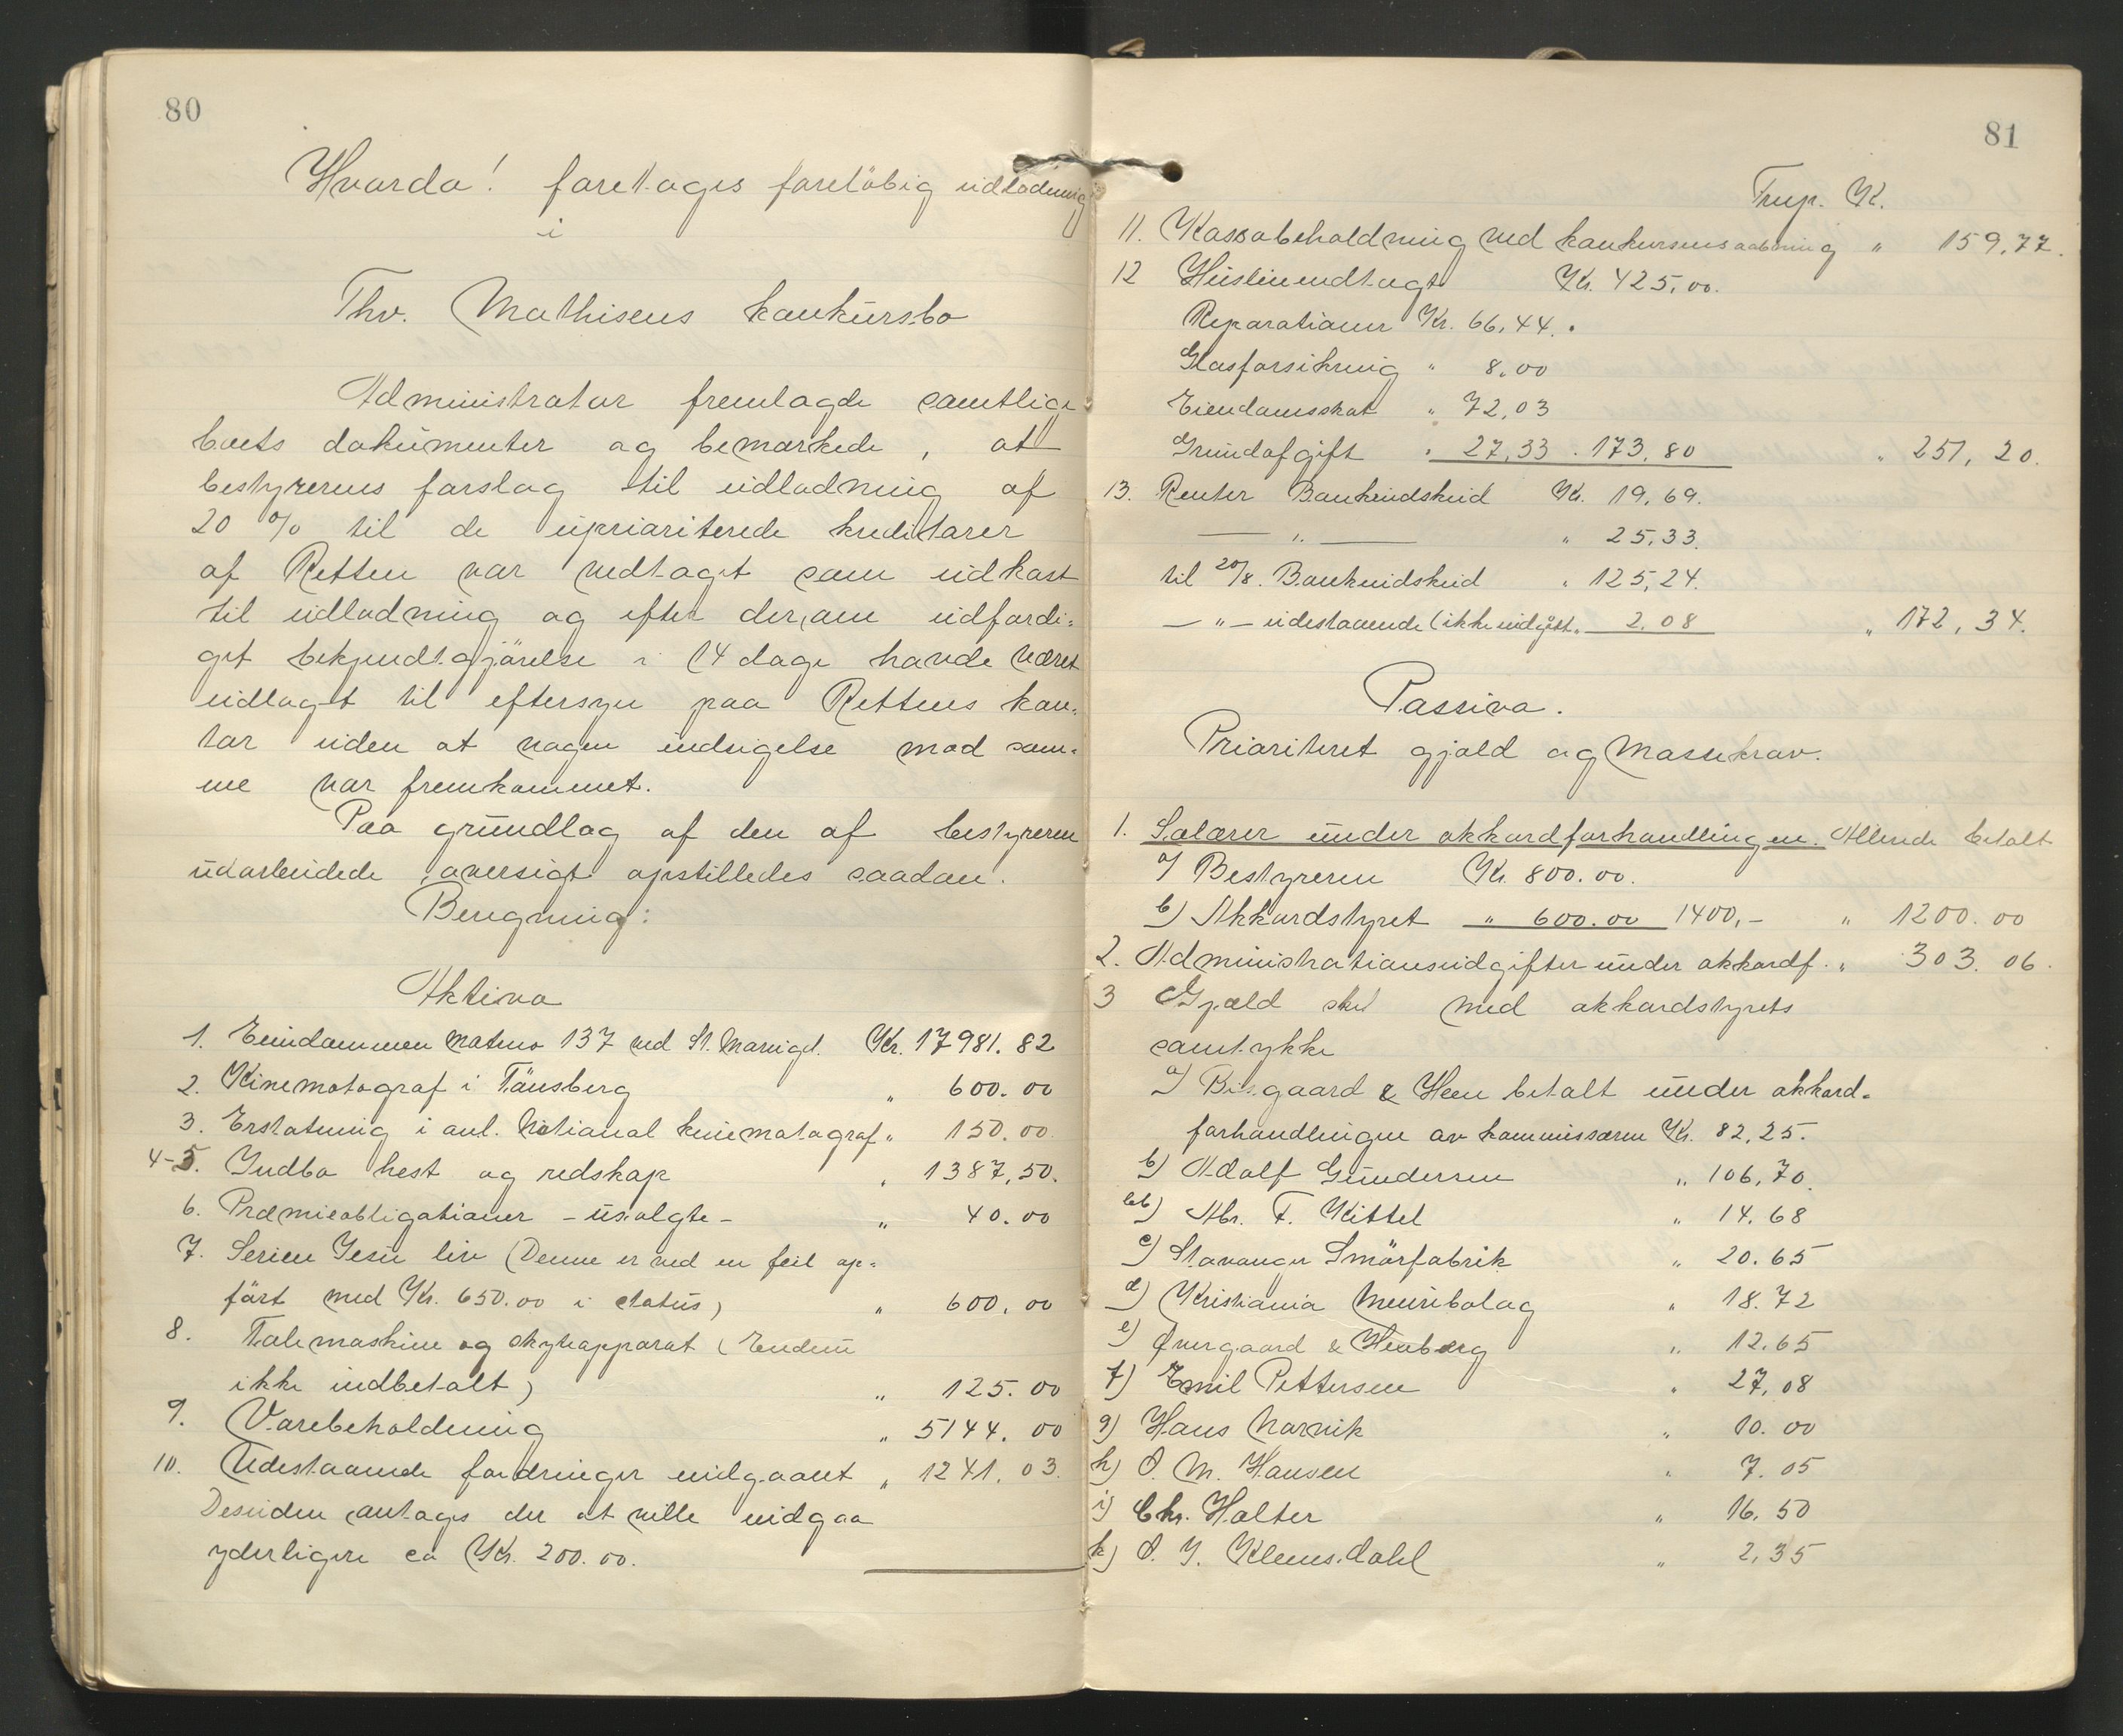 80
Hvorda! foretages foreløbig udlodning
i
Thv. Mathisens konkursbo
Administrator fremlagde samtlige
boets dokumenter og bemærkede, at
bestyrerens forslag til udlodning af
20 % til de uprioriterede kreditorer
af Retten var vedtaget som udkast
til udlodning og efter derom udfærdi-
get bekjendtgjörelse i 14 dage havde været
udlagt til eftersyn paa Rettens kon-
tor uden at nogen indsigelse mod sam-
me var fremkommet.
Paa grundlag af den af bestyreren
udarbeidede oversigt opstilledes saadan
Beregning:
Aktiva
1. Eiendommen matrno 137 ved St. Mariegt. Kr. 17981.82
2. Kinematograf i Tönsberg " 600.00
3. Erstatning i anl. National kinematograf " 150.00
4-5. Indbo hest og redskap " 1387,50.
6. Præmieobligationer - usolgte - " 40.00
7. Serien Jesu liv (Denne er ved en feil op-
fört med Kr. 650.00 i status) " 600,00
8. Talemaskine og skyteapparat (Endnu
ikke indbetalt) " 125.00
9. Varebeholdning " 5144.00
10. Udestaaende fordringer indgaaet " 1241.03.
Desuden antages der at ville indgaa
yderligere ca Kr. 200.00.
81
Trsp. K.
11. Kassabeholdning ved konkursens aabning " 159,77.
12 Husleieindtægt Kr. 425,00.
Reparationer Kr. 66,44.
Glasforsikring " 8.00
Eiendomsskat " 72,03
Grundafgift " 27,33 . 173,80 " 251,20.
13. Renter Bankindskud Kr. 19,69.
— " — " 25,33.
til 20/8. Bankindskud " 125,24.
— " — udestaaende (ikke indgåt " 2,08 " 172,34.
Passiva.
Prioriteret gjæld og Massekrav.
1. Salærer under akkordforhandlingen. Allerede betalt
a) Bestyreren Kr. 800.00.
b) Akkordstyret " 600.00 1400,- " 1200.00
2. Administrationsudgifter under akkordf. " 303.06.
3 Gjæld sket med akkordstyrets
samtykke
a) Bisgaard & Heen betalt under akkord-
forhandlingen av kommissæren Kr. 82,25.
b) Adolf Gundersen " 106,70.
bb) Abr. F. Kittel " 14.68
c) Stavanger Smörfabrik " 20.65
d) Kristiania Meieribolag " 18.72
e) Overgaard & Henberg " 12.65
f) Emil Pettersen " 27,08
g) Hans Narvik " 10.00
h) O. M. Hansen " 7.05
i) Chr. Holter " 16.50
k) O. J. Klemsdahl " 2,35